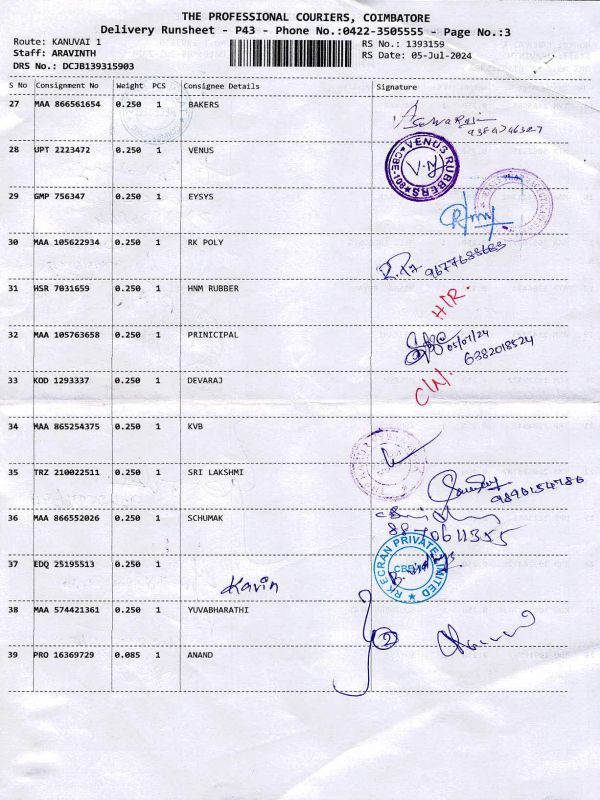 THE PROFESSIONAL COURIERS, COIMBATORE
Delivery Runsheet - P43 - Phone No.:0422-3505555 - Page No.:3
Route: KANUVAI 1 RS No.: 1393159
Staff: ARAVINTH RS Date: 05-Jul-2024
DRS No.: DCJB139315903
S No Consignment No Weight PCS Consignee Details Signature
27 MAA 866561654 0.250 1 BAKERS
28 UPT 2223472 0.250 1 VENUS
VENUS RUBBERS
V.M
29 GMP 756347 0.250 1 EYSYS
30 MAA 105622934 0.250 1 RK POLY
9677688683
31 HSR 7031659 0.250 1 HNM RUBBER
H/R.
32 MAA 105763658 0.250 1 PRINICIPAL
05/07/24
6382018524
33 KOD 1293337 0.250 1 DEVARAJ
C/N.
34 MAA 865254375 0.250 1 KVB
35 TRZ 210022511 0.250 1 SRI LAKSHMI
9890154786
36 MAA 866552026 0.250 1 SCHUMAK
37 EDQ 25195513 0.250 1
Kavin
RK ECRAN PRIVATE LIMITED
38 MAA 574421361 0.250 1 YUVABHARATHI
2
39 PRO 16369729 0.085 1 ANAND